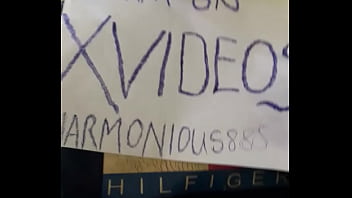 ON
XVIDEOS
HARMONIOUS885
HILFIGER